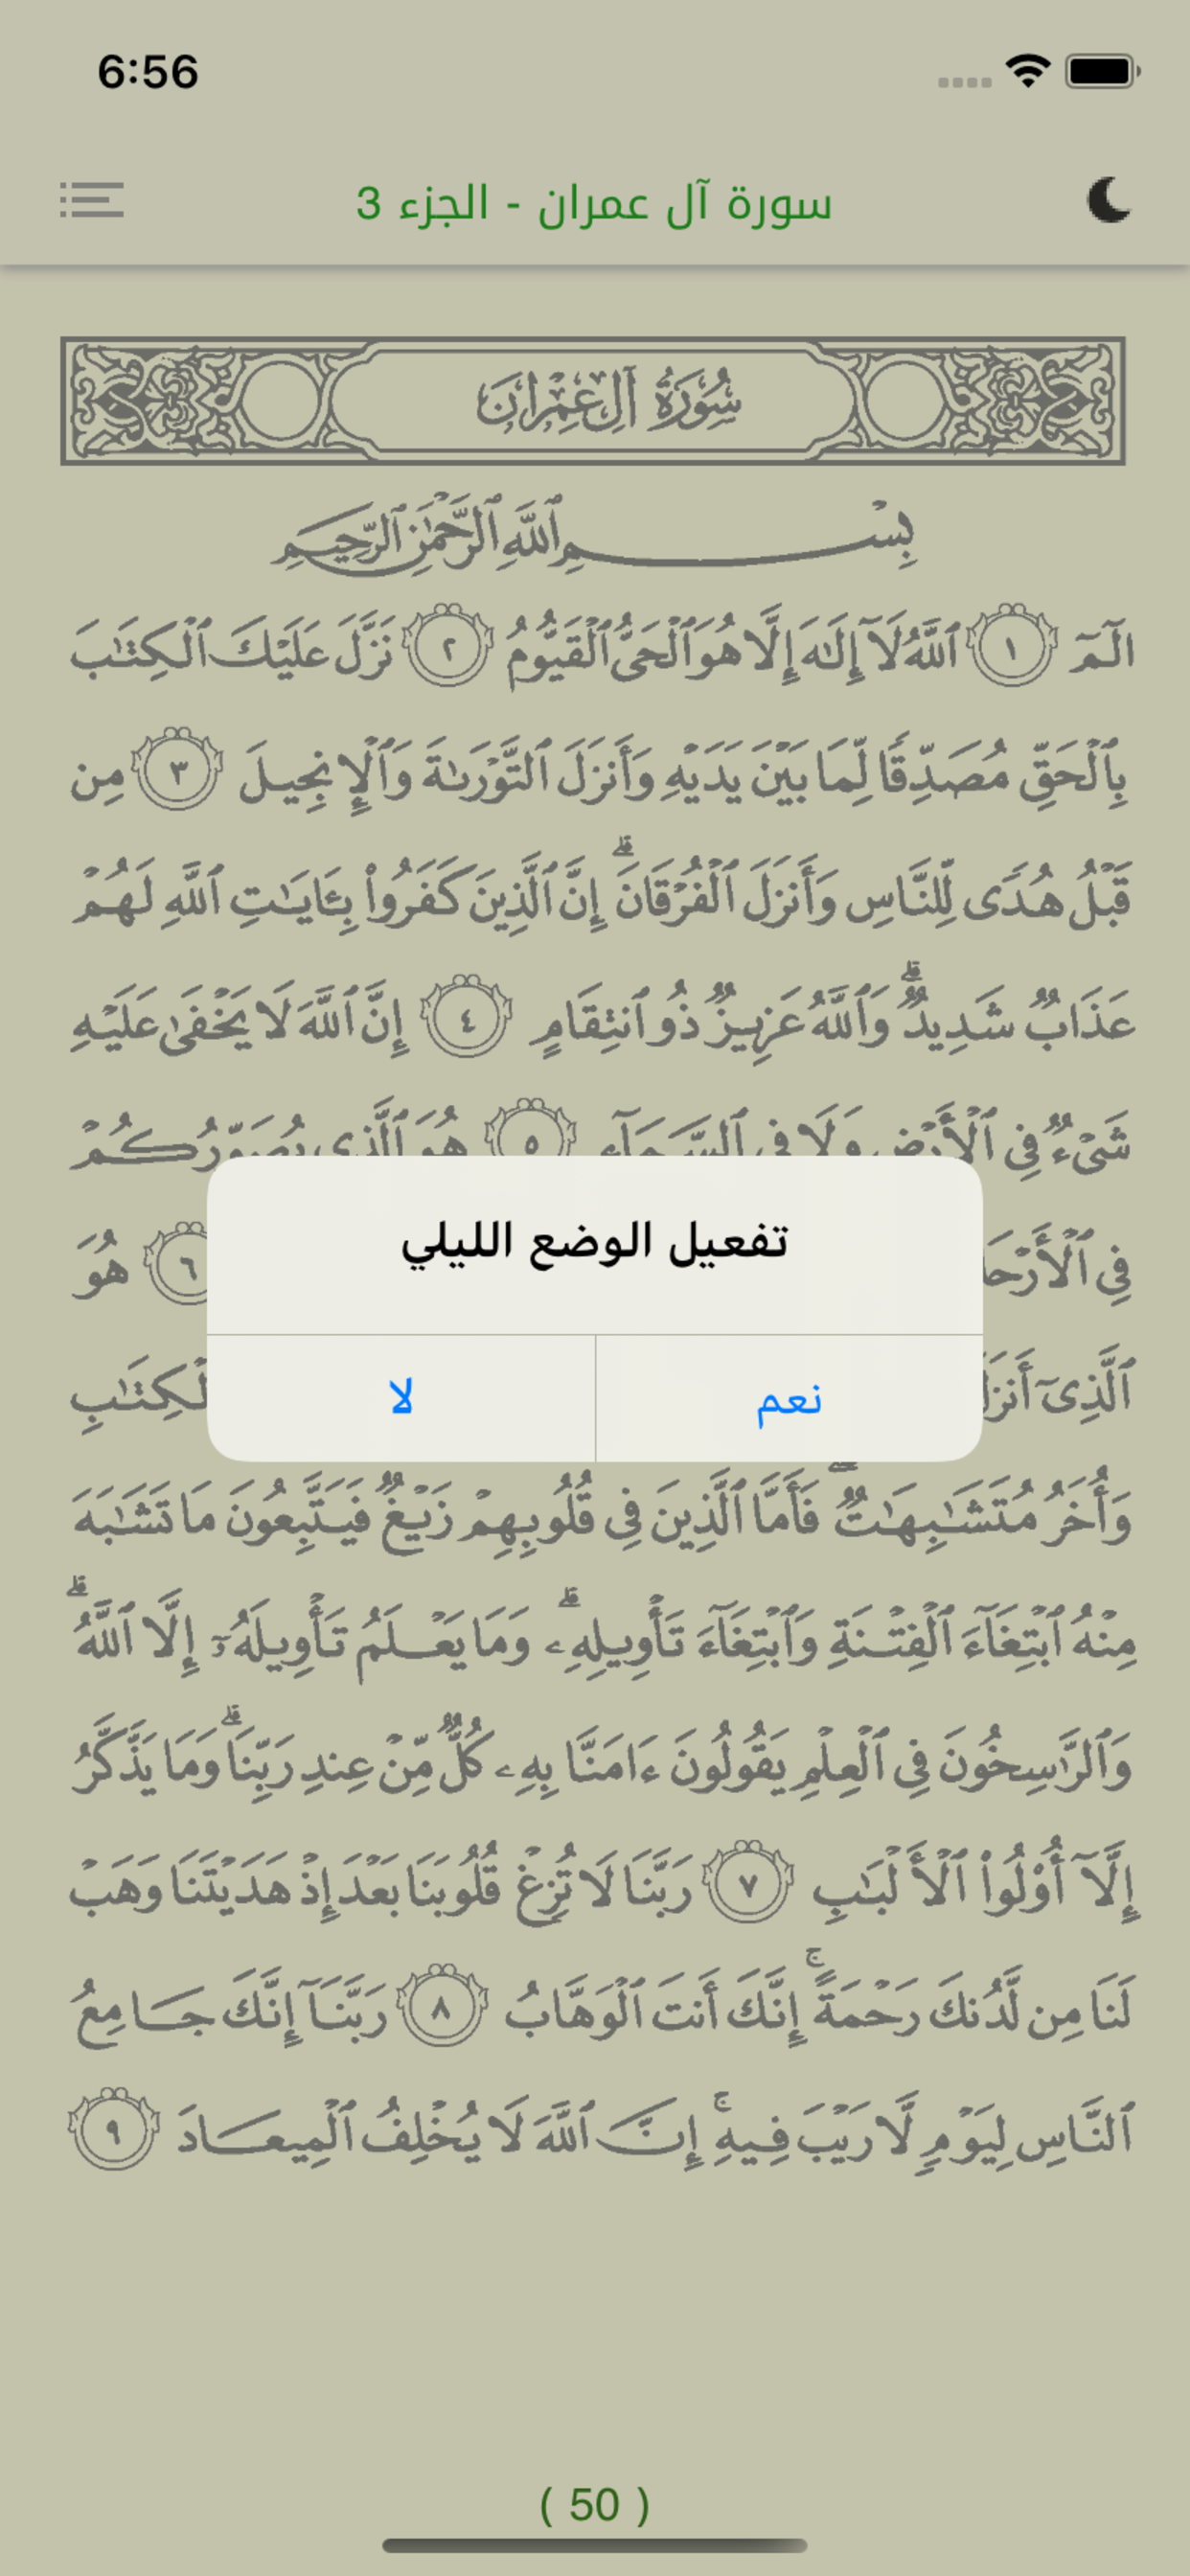 6:56
سورة آل عمران - الجزء 3
سُورَةُ آلِ عِمْرَانَ
بِسْمِ ٱللَّهِ ٱلرَّحْمَٰنِ ٱلرَّحِيمِ
الٓمٓ ١ ٱللَّهُ لَآ إِلَٰهَ إِلَّا هُوَ ٱلْحَىُّ ٱلْقَيُّومُ ٢ نَزَّلَ عَلَيْكَ ٱلْكِتَٰبَ
بِٱلْحَقِّ مُصَدِّقًا لِّمَا بَيْنَ يَدَيْهِ وَأَنزَلَ ٱلتَّوْرَىٰةَ وَٱلْإِنجِيلَ ٣ مِن
قَبْلُ هُدًى لِّلنَّاسِ وَأَنزَلَ ٱلْفُرْقَانَ ۗ إِنَّ ٱلَّذِينَ كَفَرُوا۟ بِـَٔايَٰتِ ٱللَّهِ لَهُمْ
عَذَابٌ شَدِيدٌ ۗ وَٱللَّهُ عَزِيزٌ ذُو ٱنتِقَامٍ ٤ إِنَّ ٱللَّهَ لَا يَخْفَىٰ عَلَيْهِ
شَىْءٌ فِى ٱلْأَرْضِ وَلَا فِى ٱلسَّمَآءِ ٥ هُوَ ٱلَّذِى يُصَوِّرُكُمْ
فِى ٱلْأَرْحَا ٦ هُوَ
تفعيل الوضع الليلي
ٱلَّذِىٓ أَنزَلَ ٱلْكِتَٰبِ
نعم
لا
وَأُخَرُ مُتَشَٰبِهَٰتٌ ۖ فَأَمَّا ٱلَّذِينَ فِى قُلُوبِهِمْ زَيْغٌ فَيَتَّبِعُونَ مَا تَشَٰبَهَ
مِنْهُ ٱبْتِغَآءَ ٱلْفِتْنَةِ وَٱبْتِغَآءَ تَأْوِيلِهِۦ ۗ وَمَا يَعْلَمُ تَأْوِيلَهُۥٓ إِلَّا ٱللَّهُ ۗ
وَٱلرَّٰسِخُونَ فِى ٱلْعِلْمِ يَقُولُونَ ءَامَنَّا بِهِۦ كُلٌّ مِّنْ عِندِ رَبِّنَا ۗ وَمَا يَذَّكَّرُ
إِلَّآ أُو۟لُوا۟ ٱلْأَلْبَٰبِ ٧ رَبَّنَا لَا تُزِغْ قُلُوبَنَا بَعْدَ إِذْ هَدَيْتَنَا وَهَبْ
لَنَا مِن لَّدُنكَ رَحْمَةً ۚ إِنَّكَ أَنتَ ٱلْوَهَّابُ ٨ رَبَّنَآ إِنَّكَ جَامِعُ
ٱلنَّاسِ لِيَوْمٍ لَّا رَيْبَ فِيهِ ۚ إِنَّ ٱللَّهَ لَا يُخْلِفُ ٱلْمِيعَادَ ٩
( 50 )